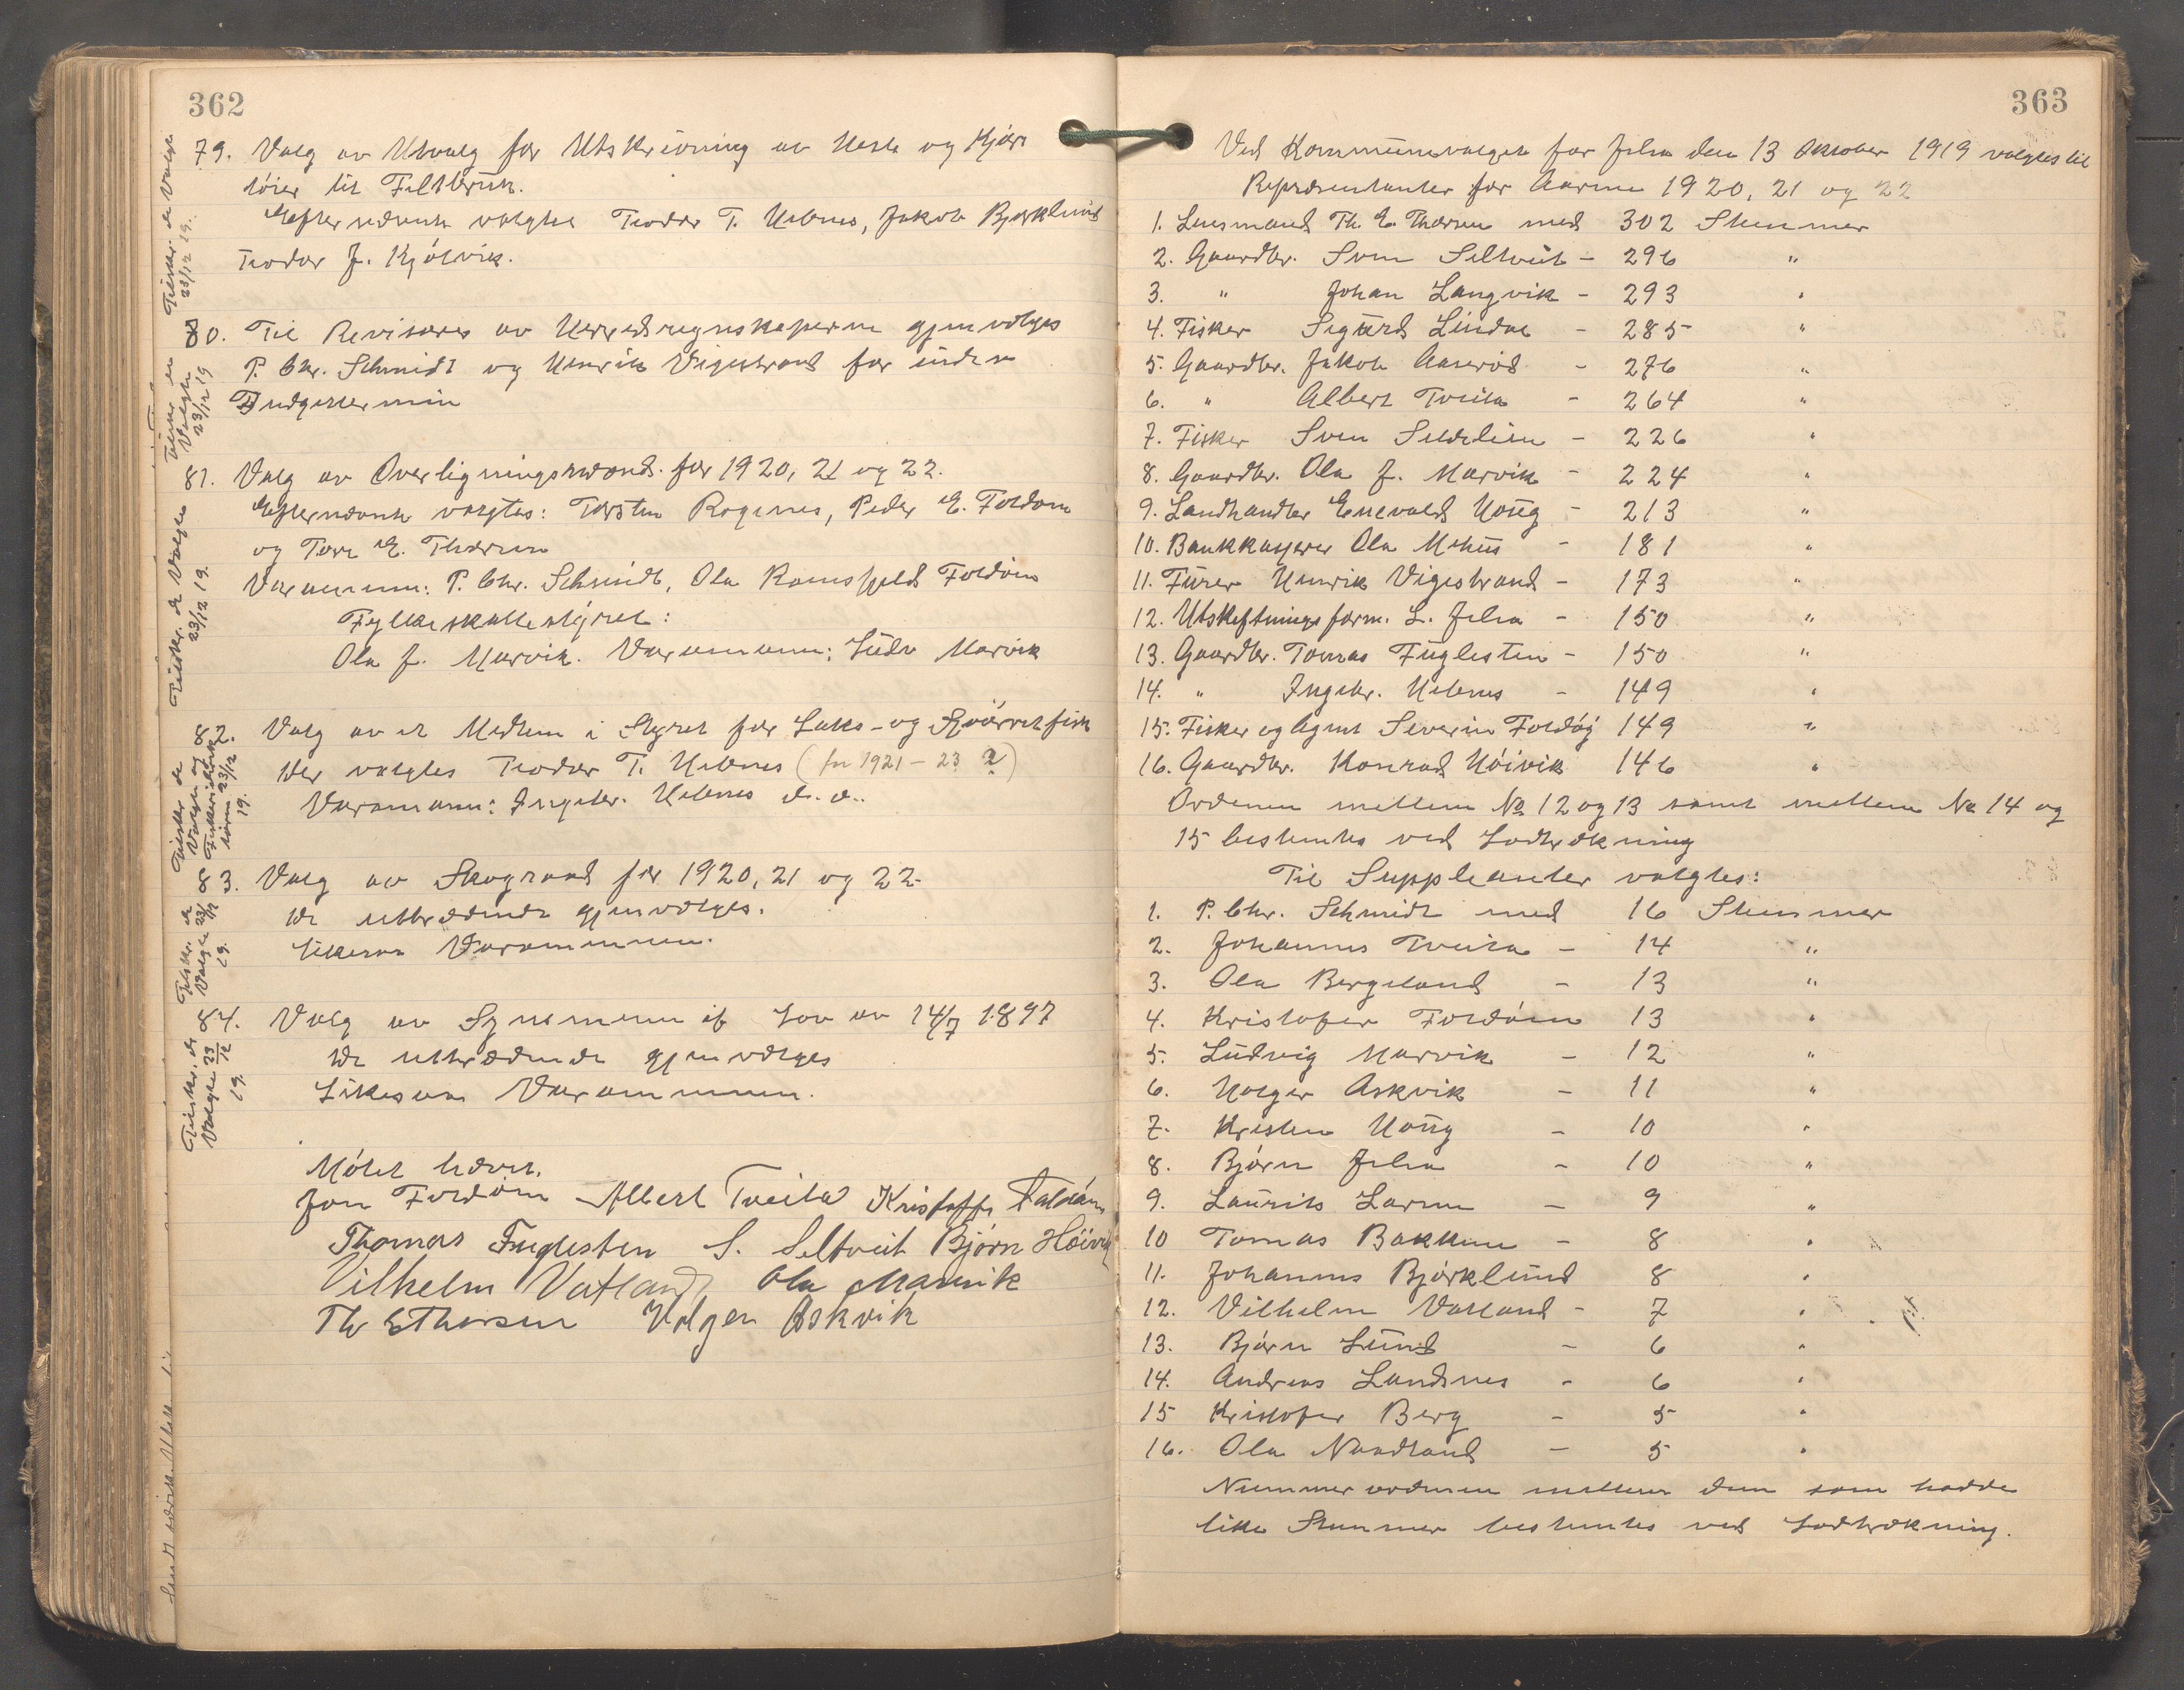 362
79. Valg av Utvalg for Utskrivning av Heste og Kjøre
tøier til Feltbruk.
Efternævnte valgtes Teodor T. Hebnes, Jakob Bjørklund
Teodor J. Kjølvik.
Tilskr. de Valgte
23/12 19.
80. Til Revisorer av Herredsregnskaperne gjenvalges
P. Chr. Schmidt og Henrik Vigestrand for inden
Budgettermin
Valgte
23/12 19
81. Valg av Overligningsmænd for 1920, 21 og 22.
Efternævnte valgtes: Torsten Rognes, Peder E. Foldøen
og Tore E. Thorsen
Varamenn: P. Chr. Schmidt, Ola Ramsfjeld Foldøen
Fylkesskattestyret:
Ola J. Marvik. Varamann: Ludv Marvik
Tilskr. de Valgte
23/12 19.
82. Valg av et Medlem i Styret for Laks- og Sjøørretfisk
Der valgtes Teodor T. Hebnes (for 1921-23 ?)
Varamann: Ingebr. Hebnes
Tilskr de
Valgte og
23/12
19.
83. Valg av Skograad for 1920, 21 og 22.
De uttrædende gjenvalges.
Likesaa Varamennene.
Tilskr. de
Valgte 23/12
19.
84. Valg av Synsmenn if Lov av 14/7 1897
De uttrædende gjenvælges
Likesaa Varamennene.
Tilskr. de
Valgte 23/12
19.
Møtet hævet.
Jon Foldøen Albert Tveita Kristoffer Foldøen
Thomas Fuglesten S. Seltveit Bjørn Høivik
Vilhelm Vatland Ola Marvik
Th E Thorsen Holger Askvik
363
Ved Kommunevalget for Jelsa den 13 Oktober 1919 valgtes til
Repræsentanter for Aarene 1920, 21 og 22
1. Lensmand Th. E. Thorsen med 302 Stemmer
2. Gaardbr. Sven Seltveit - 296 "
3. " Johan Langvik - 293 "
4. Fisker Sigurd Lindøe - 285 "
5. Gaardbr. Jakob Aaserød - 276 "
6. " Albert Tveita - 264 "
7. Fisker Sven Selvlien - 226 "
8. Gaardbr. Ola J. Marvik - 224 "
9. Landhandler Enevald Houg - 213 "
10. Bankkasserer Ola Mehus - 181 "
11. Furer Henrik Vigestrand - 173 "
12. Utskiftningsform. L. Jelsa - 150 "
13. Gaardbr. Tomas Fuglesten - 150 "
14. " Ingebr. Hebnes - 149 "
15. Fisker og Agent Severin Foldøy 149 "
16. Gaardbr. Konrad Høivik 146 "
Ordenen mellem No 12 og 13 samt mellem No 14 og
15 bestemtes ved Lodtrækning
Til Suppleanter valgtes:
1. P. Chr. Schmidt med 16 Stemmer
2. Johannes Tveita - 14 "
3. Ola Bergeland - 13 "
4. Kristofer Foldøen 13 "
5. Ludvig Marvik - 12 "
6. Holger Askvik - 11 "
7. Kristen Houg - 10 "
8. Bjørn Jelsa - 10 "
9. Laurits Larsen - 9 "
10 Tomas Bakken - 8 "
11. Johannes Bjørklund 8 "
12. Vilhelm Vatland - 7 "
13. Bjørn Lund - 6 "
14. Andreas Landsnes - 6 "
15 Kristofer Berg - 5 "
16. Ola Naadland - 5 "
Nummerordenen mellem dem som hadde
like Stemmer bestemtes ved Lodtrækning.